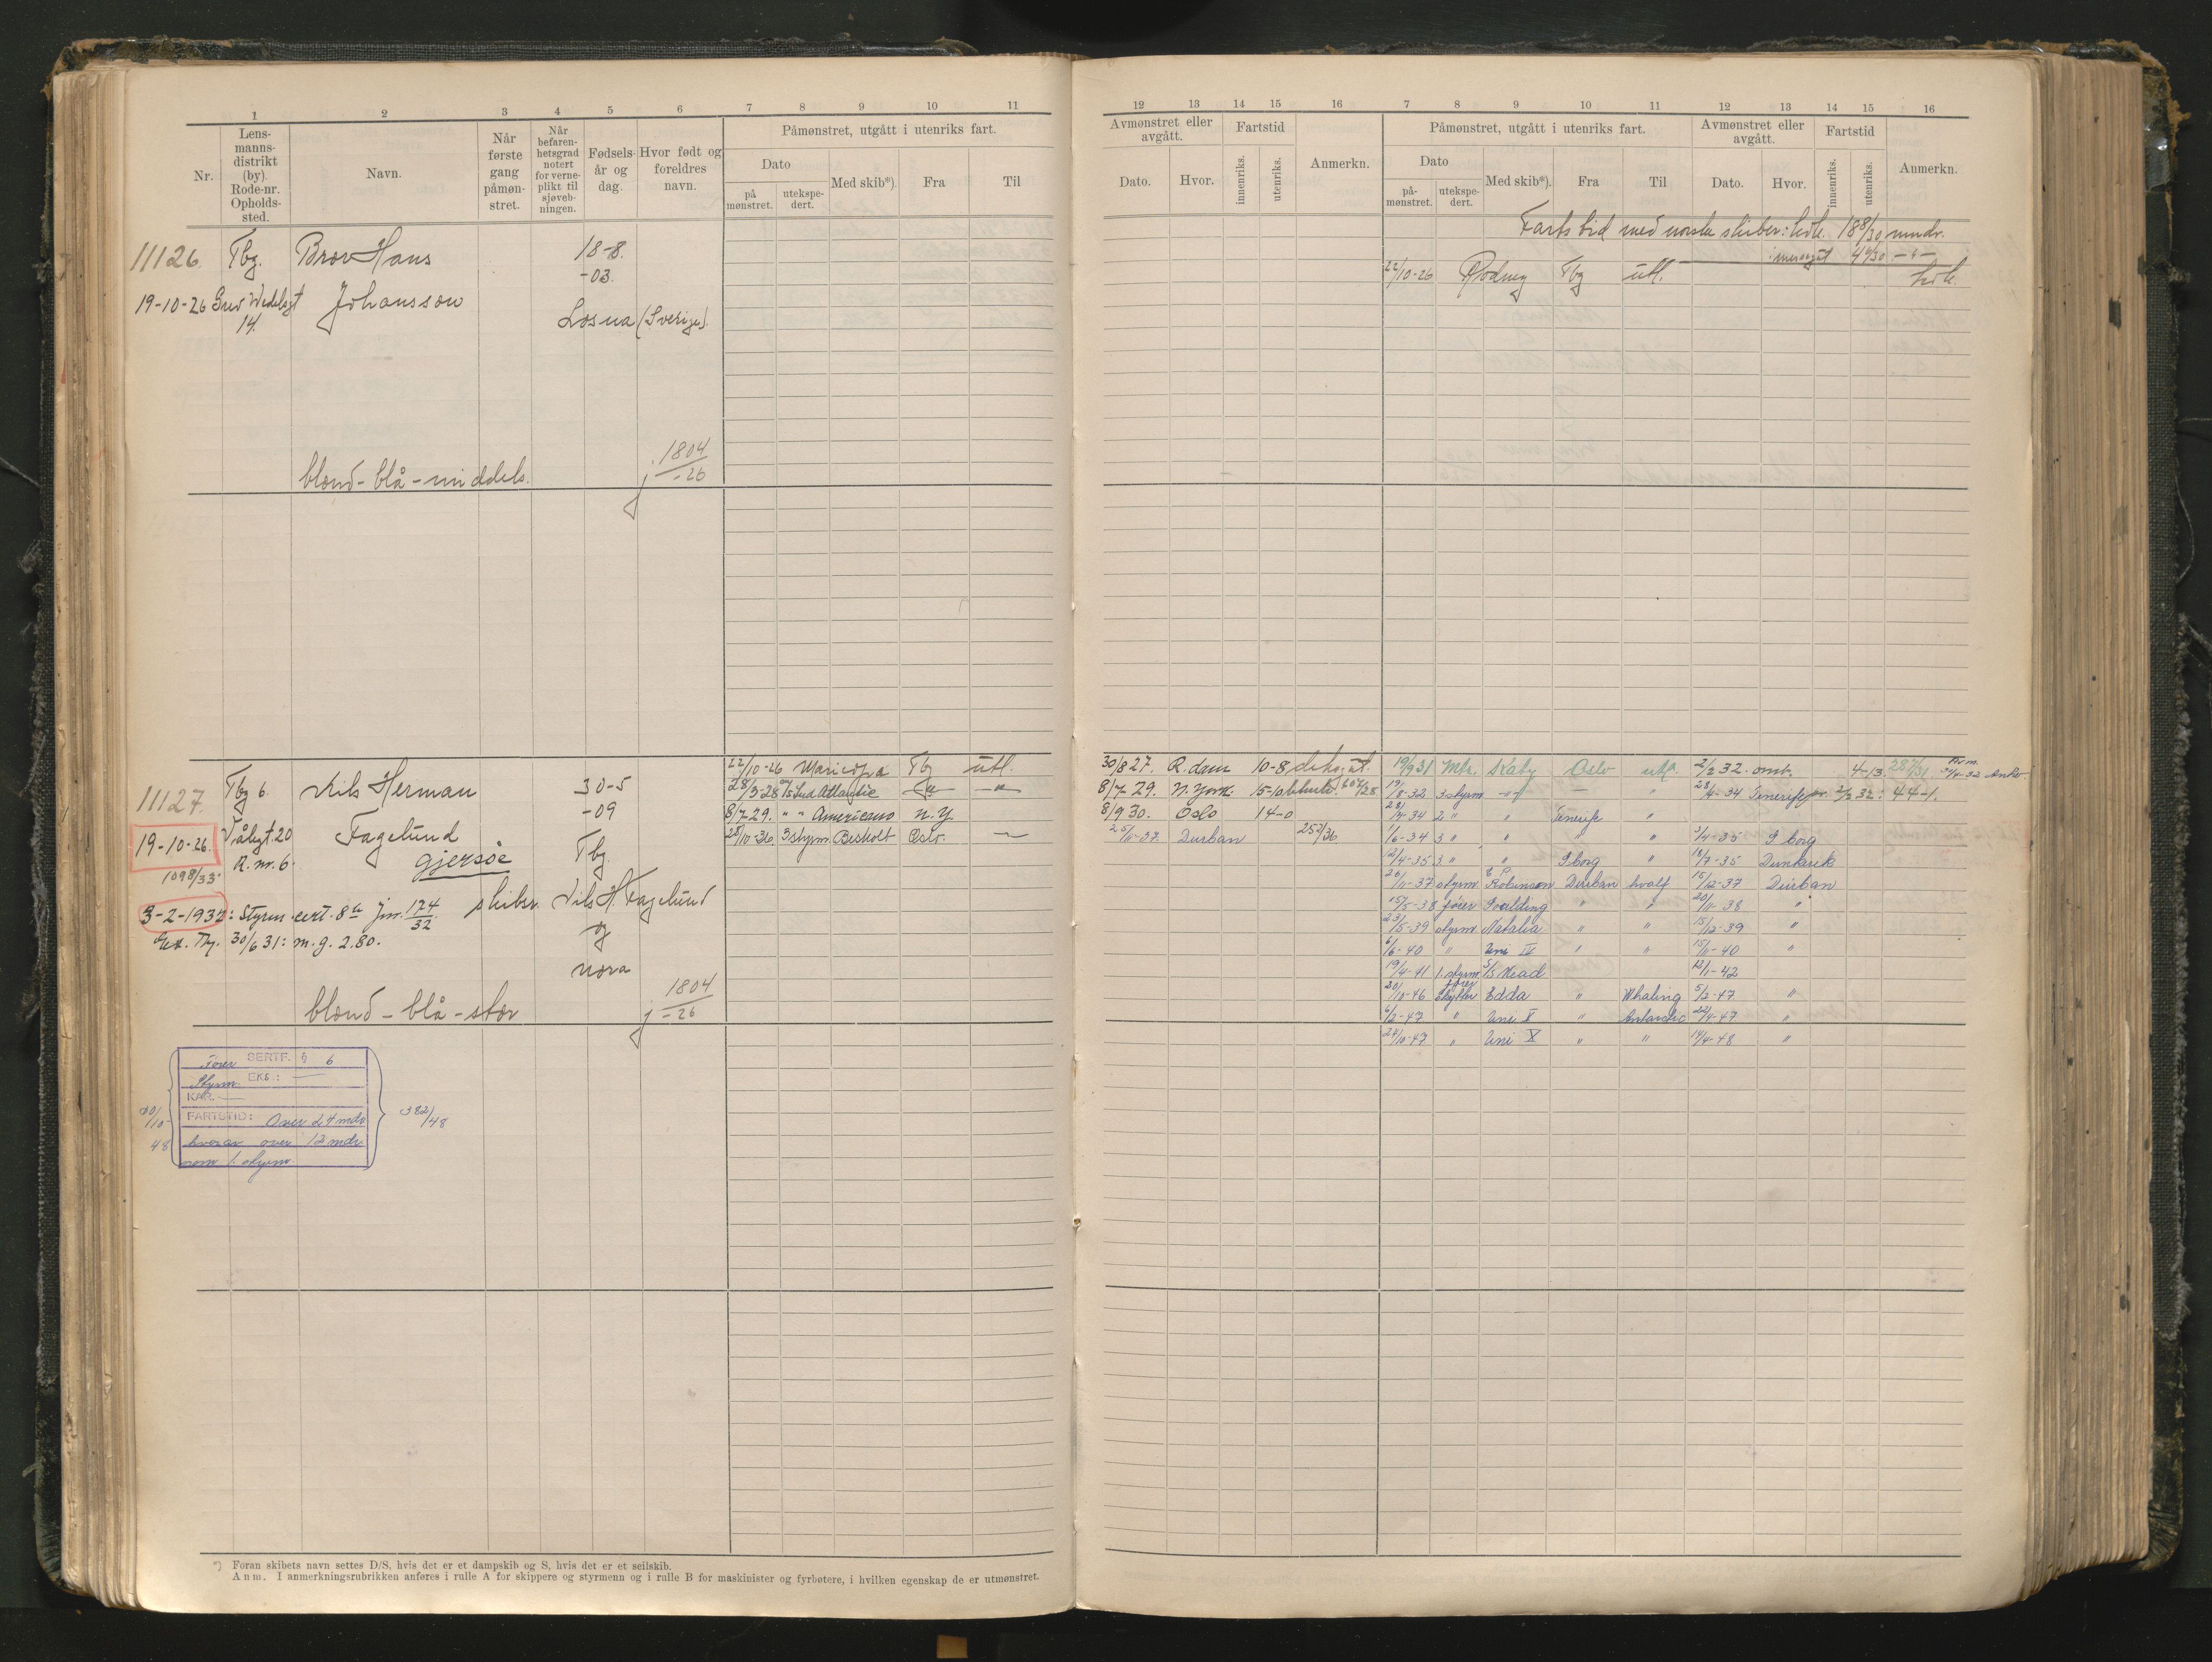 1 2 3 4 5 6 7 8 9 10 11
Nr.
Lens-
manns-
distrikt
(by).
Rode-nr.
Opholds-
sted.
Navn.
Når
første
gang
påmøn-
stret.
Når
befaren-
hetsgrad
notert
for verne-
plikt til
sjøveb-
ningen.
Fødsels-
år og
dag.
Hvor født og
foreldres
navn.
Påmønstret, utgått i utenriks fart.
Dato
på
mønstret.
utekspe-
dert.
Med skib*).
Fra
Til
11126. Tbg. Brov Hans 18-8.
-03.
19-10-26 Grev Wedelsgt Johansson
14.
Losna (Sverige).
blond - blå - middels. j. 1804/-26
11127. Tbg 6. Nils Herman 30-5
-09
19-10-26. Vålegt. 20 Fagelund
R. nr. 6. gjersøe Tbg.
1098/33
3-2-1932: Styrm. cert. 8a jnr. 174/32 skibsr. Nils H. Fagelund
Eks. Tbg. 30/6 31: m.g. 2.80. og
Nora
blond - blå - stor j 1804/-26
22/10-26 Maricopa Tbg utl.
28/3-28 m/s Sud Atlantic -"- -"-
8/7-29. " " Americano N.Y.
28/10-36 3 styrm. Bisholt Oslo. —
SERTF. § 6
Fører
EKS.: —
Styrm.
KAR. —
FARTSTID: Over 24 mdr
hvorav over 12 mdr
som 1. styrm
20/10-48
382/48
*) Foran skibets navn settes D/S, hvis det er et dampskib og S, hvis det er et seilskib.
Anm. I anmerkningsrubrikken anføres i rulle A for skippere og styrmenn og i rulle B for maskinister og fyrbøtere, i hvilken egenskap de er utmønstret.
12 13 14 15 16 7 8 9 10 11 12 13 14 15 16
Avmønstret eller
avgått.
Dato.
Hvor.
Fartstid
innenriks.
utenriks.
Anmerkn.
Påmønstret, utgått i utenriks fart.
Dato
på-
mønstret.
utekspe-
dert.
Med skib*).
Fra
Til
Avmønstret eller
avgått.
Dato.
Hvor.
Fartstid
innenriks.
utenriks.
Anmerkn.
Fartstid med norske skiber: 18 8/30 mndr.
22/10-26 Rodney Tbg utl.
30/8 27. R.dam 10-8 deksgut.
8/7 29. N. York. 15-10
8/9 30. Oslo 14-0
25/11-37. Durban 252/36
19/9 31 Mtr. Katy Oslo utl. 2/2 32. omb. 4-13 287/31
19/8-32 3 styrm -"- — " 28/4-34 Tenerife pr. 2/2 32: 44-1.
28/4-34 2 " " Tenerife "
1/6-34 3 " " " " 3/4-35 S borg
12/4-35 3 " " S borg " 18/7-35 Dunkirk
26/11-37 styrm. E P. Robinson Durban hvalf 15/12-37 Durban
15/5-38 fører " " 20/11-38 "
23/5-39 styrm. Natalia " " 15/12-39 "
6/6-40 " Uni IV " " 15/11-40 "
19/4-41 1. styrm. S/S Mead 12/1-42
20/10-46 fører Skytter Edda " Whaling 5/2-47 "
6/2-47 " Uni V " Antarctic 22/4-47 "
24/10-47 " Uni X " " 14/4-48 "